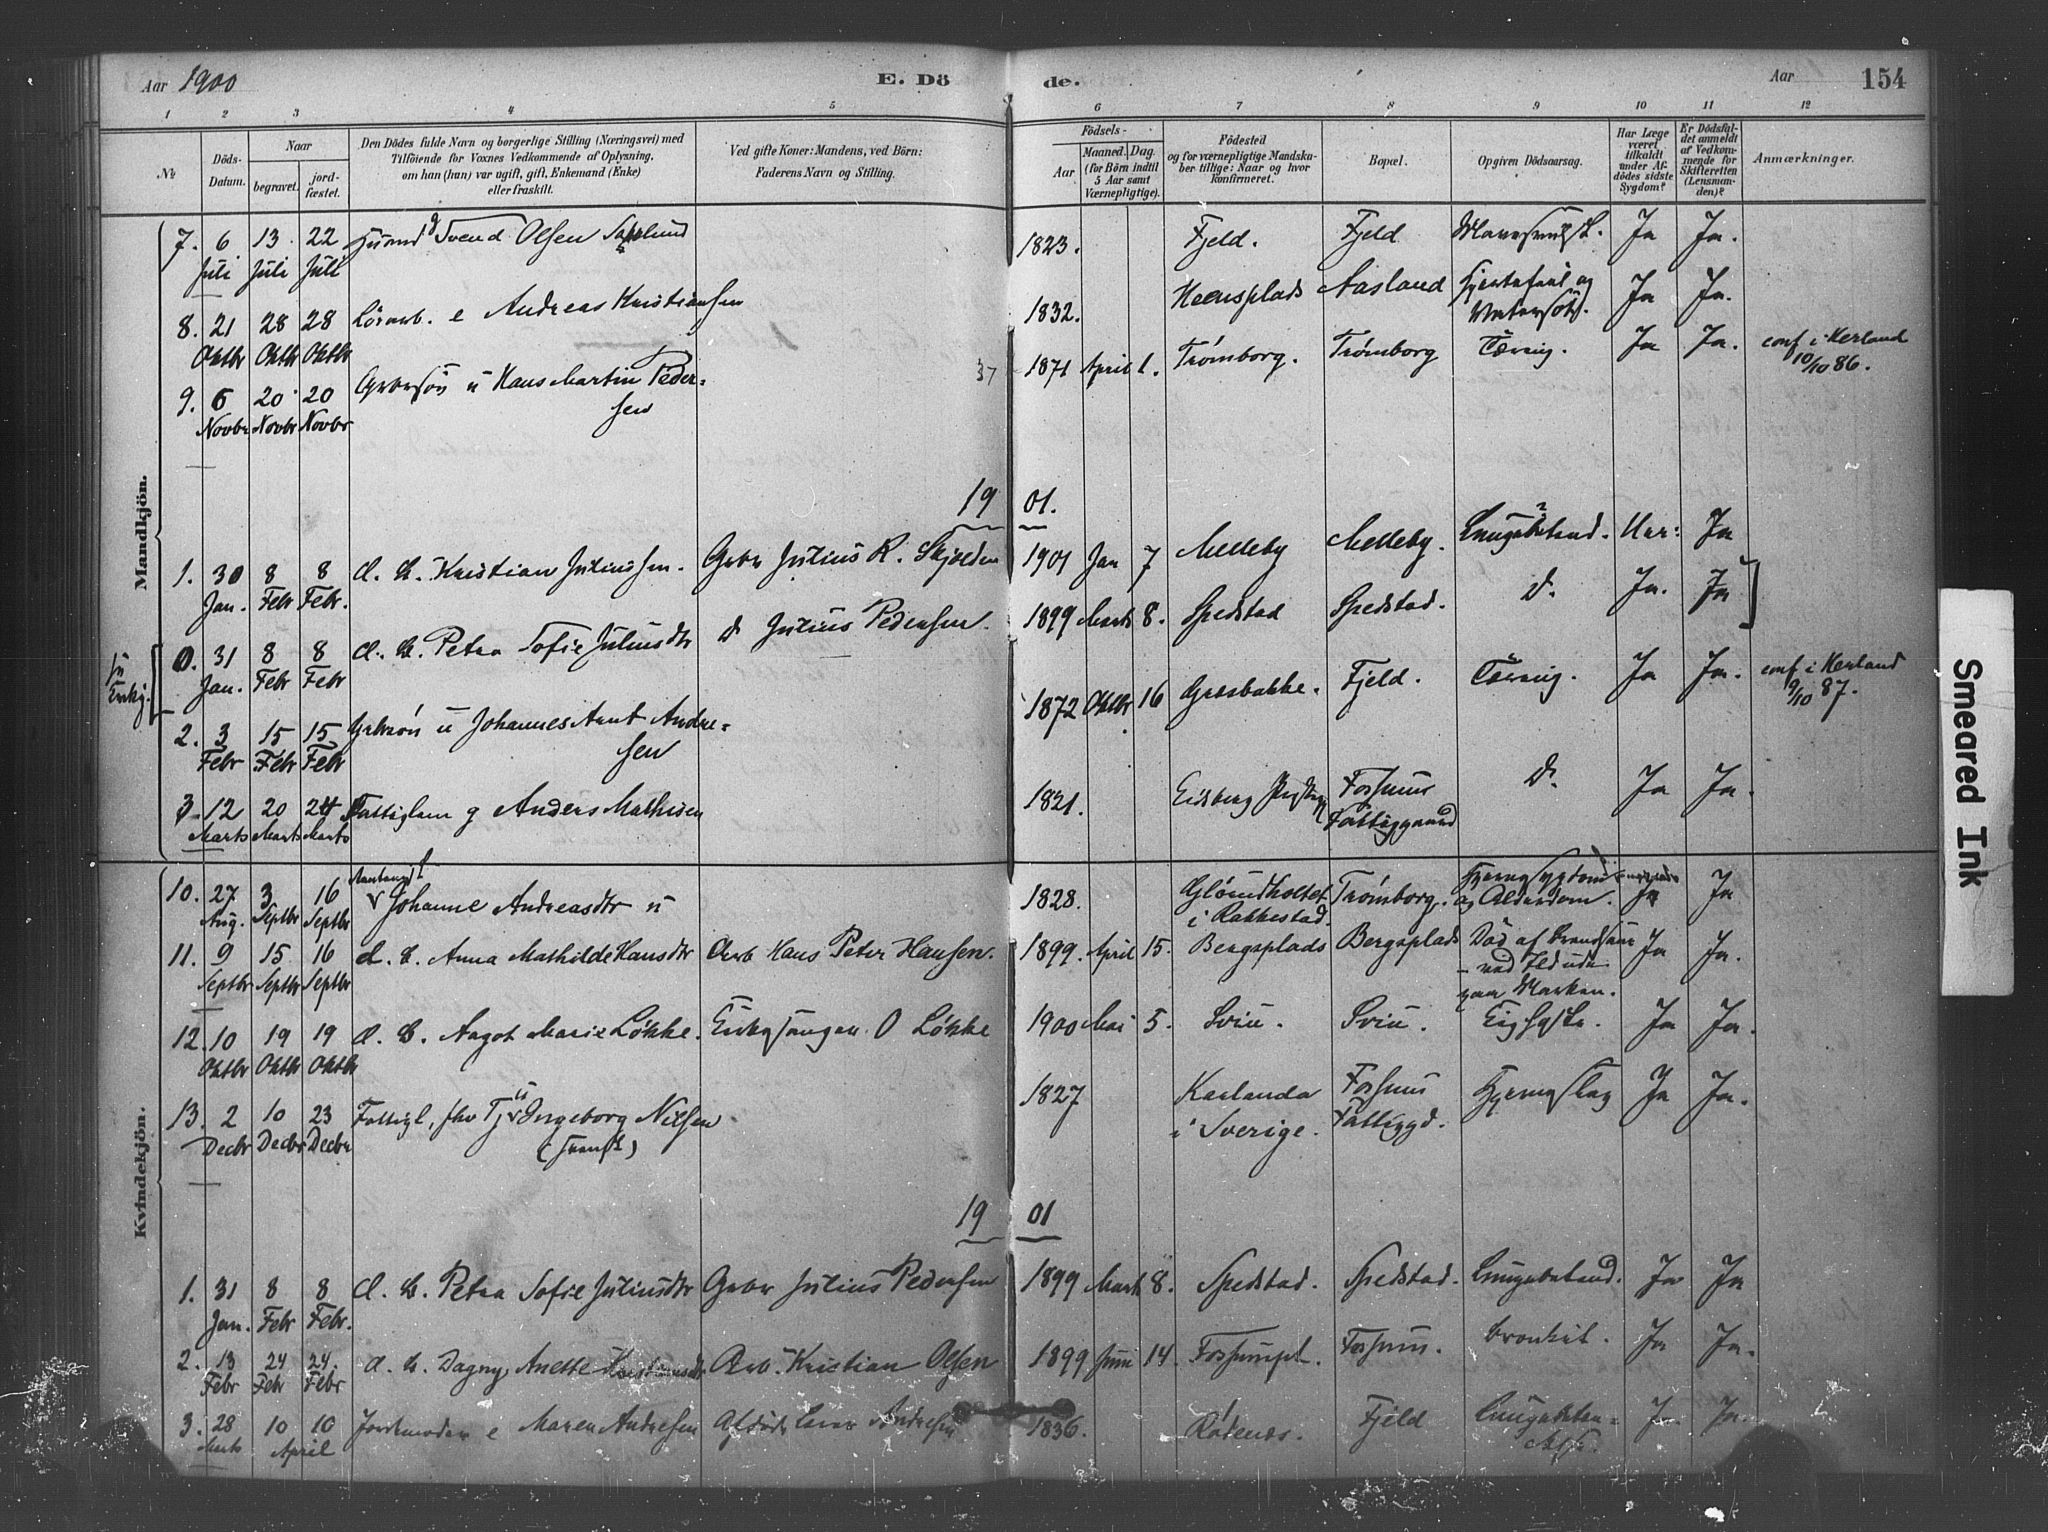 Aar 1900 E. Dö de. Aar 154
1 2 3 4 5 6 7 8 9 10 11 12
№ Döds-Datum. Naar begravet. jordfæstet. Den Dödes fulde Navn og borgerlige Stilling (Næringsvei) med Tilföiende for Voxnes Vedkommende af Oplysning, om han (hun) var ugift, gift, Enkemand (Enke) eller fraskilt. Ved gifte Koner: Mandens, ved Börn: Faderens Navn og Stilling. Födsels- Aar Maaned. Dag. (for Börn indtil 5 Aar samt Værnepligtige). Födested og for værnepligtige Mandskaber tillige: Naar og hvor konfirmeret. Bopæl. Opgiven Dödsaarsag. Har Læge været tilkaldt under Afdödes sidste Sygdom? Er Dödsfaldet anmeldt af Vedkommende for Skifteretten (Lensmanden)? Anmærkninger.
Mandkjön.
7. 6 Juli 13 Juli 22 Juli Svend Olsen 1823. Fjeld. Fjeld Ja Ja.
8. 21 Oktbr 28 Oktbr 28 Oktbr e Andreas Kristiansen 1832. Aasland Ja Ja.
9. 6 Novbr 20 Novbr 20 Novbr Gbrsön u Hans Martin Pedersen 37 1871 April 1. Trömborg. Trömborg Tæring. Ja Ja. conf i
10/10 86.
19 01.
1. 30 Jan. 8 Febr 8 Febr. d. b. Kristian Juliussen. Gbr Julius R. Skjolden 1901 Jan 7 Melleby Melleby. Lungebetænd. Ja
0. 31 Jan. 8 Febr 8 Febr d. b. Petra Sofie Juliusdtr D. Julius Pedersen. 1899 Marts 8. Spedstad Spedstad. D. Ja. Ja
2. 3 Febr 15 Febr 15 Febr Gbrsön u Johannes Arnt Andresen 1872 Oktbr 16 Græsbakke. Fjeld. Tæring. Ja Ja. conf i
9/10 87.
3. 12 Marts 20 Marts 24 Marts Fattiglem g Anders Mathisen 1821. Eidsberg Fossum Fattiggaard D. Ja Ja.
Kvindekjön.
10. 27 Aug. 3 Septbr 16 Septbr Johanne Andreasdtr u 1828. i Rakkestad. Trömborg. Hjernesygdom og Alderdom. Ja Ja
11. 9 Septbr 15 Septbr 16 Septbr d. b. Anna Mathilde Hansdtr Arb Hans Peter Hansen. 1899. April 15. Bergsplads Bergsplads Död af Brandsaar Ja Ja.
12. 10 Oktbr 19 Oktbr 19 Oktbr d. b. Aagot Marie Lökke. Kirkesanger O Lökke 1900 Mai 5. Sviu. Sviu. Ja Ja.
13. 2 Decbr 10 Decbr 23 Decbr Fattigl. Ingeborg Nilsen (svensk) 1827 Karlanda i Sverige. Fossum Fattiggd. Hjerneslag Ja Ja.
19 01
1. 31 Jan. 8 Febr 8 Febr. d. b. Petra Sofie Juliusdtr Gbr Julius Pedersen 1899 Marts 8. Spedstad. Spedstad. Lungebetænd. Ja Ja
2. 13 Febr 24 Febr 24. Febr d. b. Dagny Anette Kristiansdtr Arb. Kristian Olsen 1899 Juni 14. Fossumpl. Fossum. bronkit. Ja Ja.
3. 28 Marts 10 10 April Jordmoder e Maren Andresen Andresen 1836. Rödenæs. Fjeld Ja Ja.
Smeared Ink